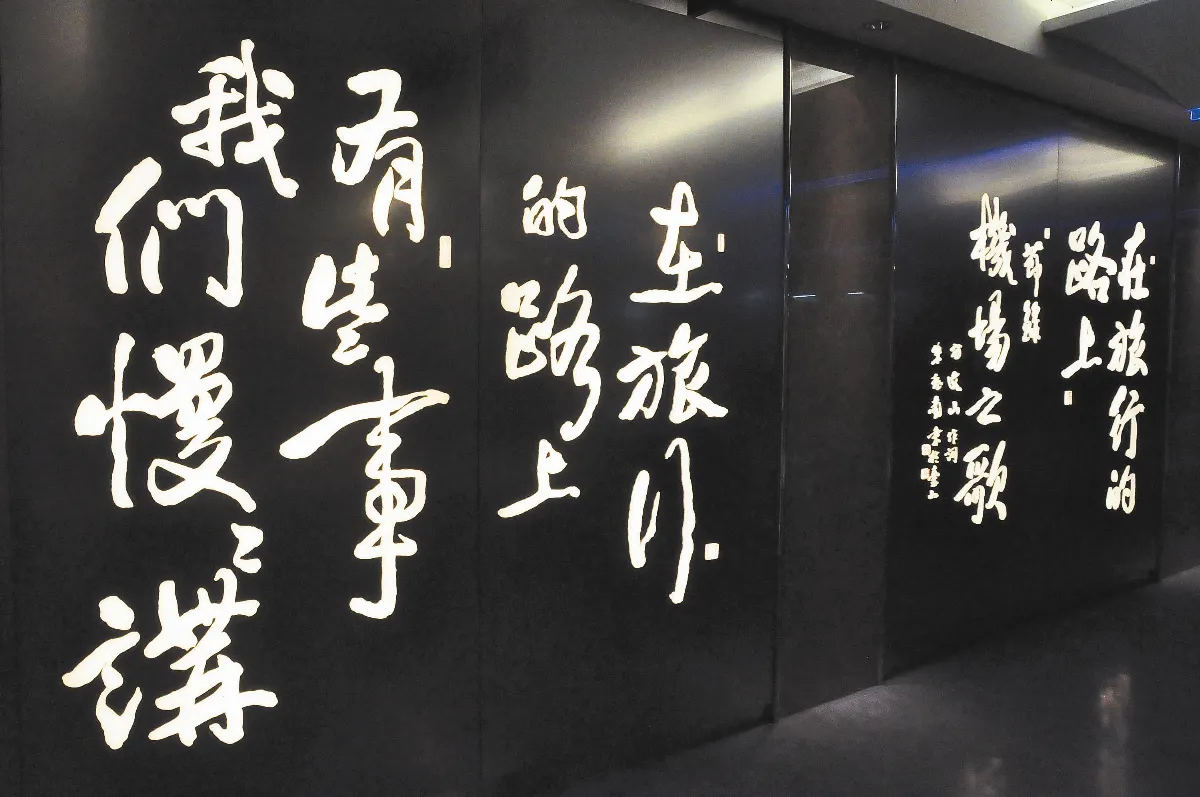 在旅行的
路上
節錄
機場之歌
山作詞
在旅行
的路上
有些事
我們慢々講